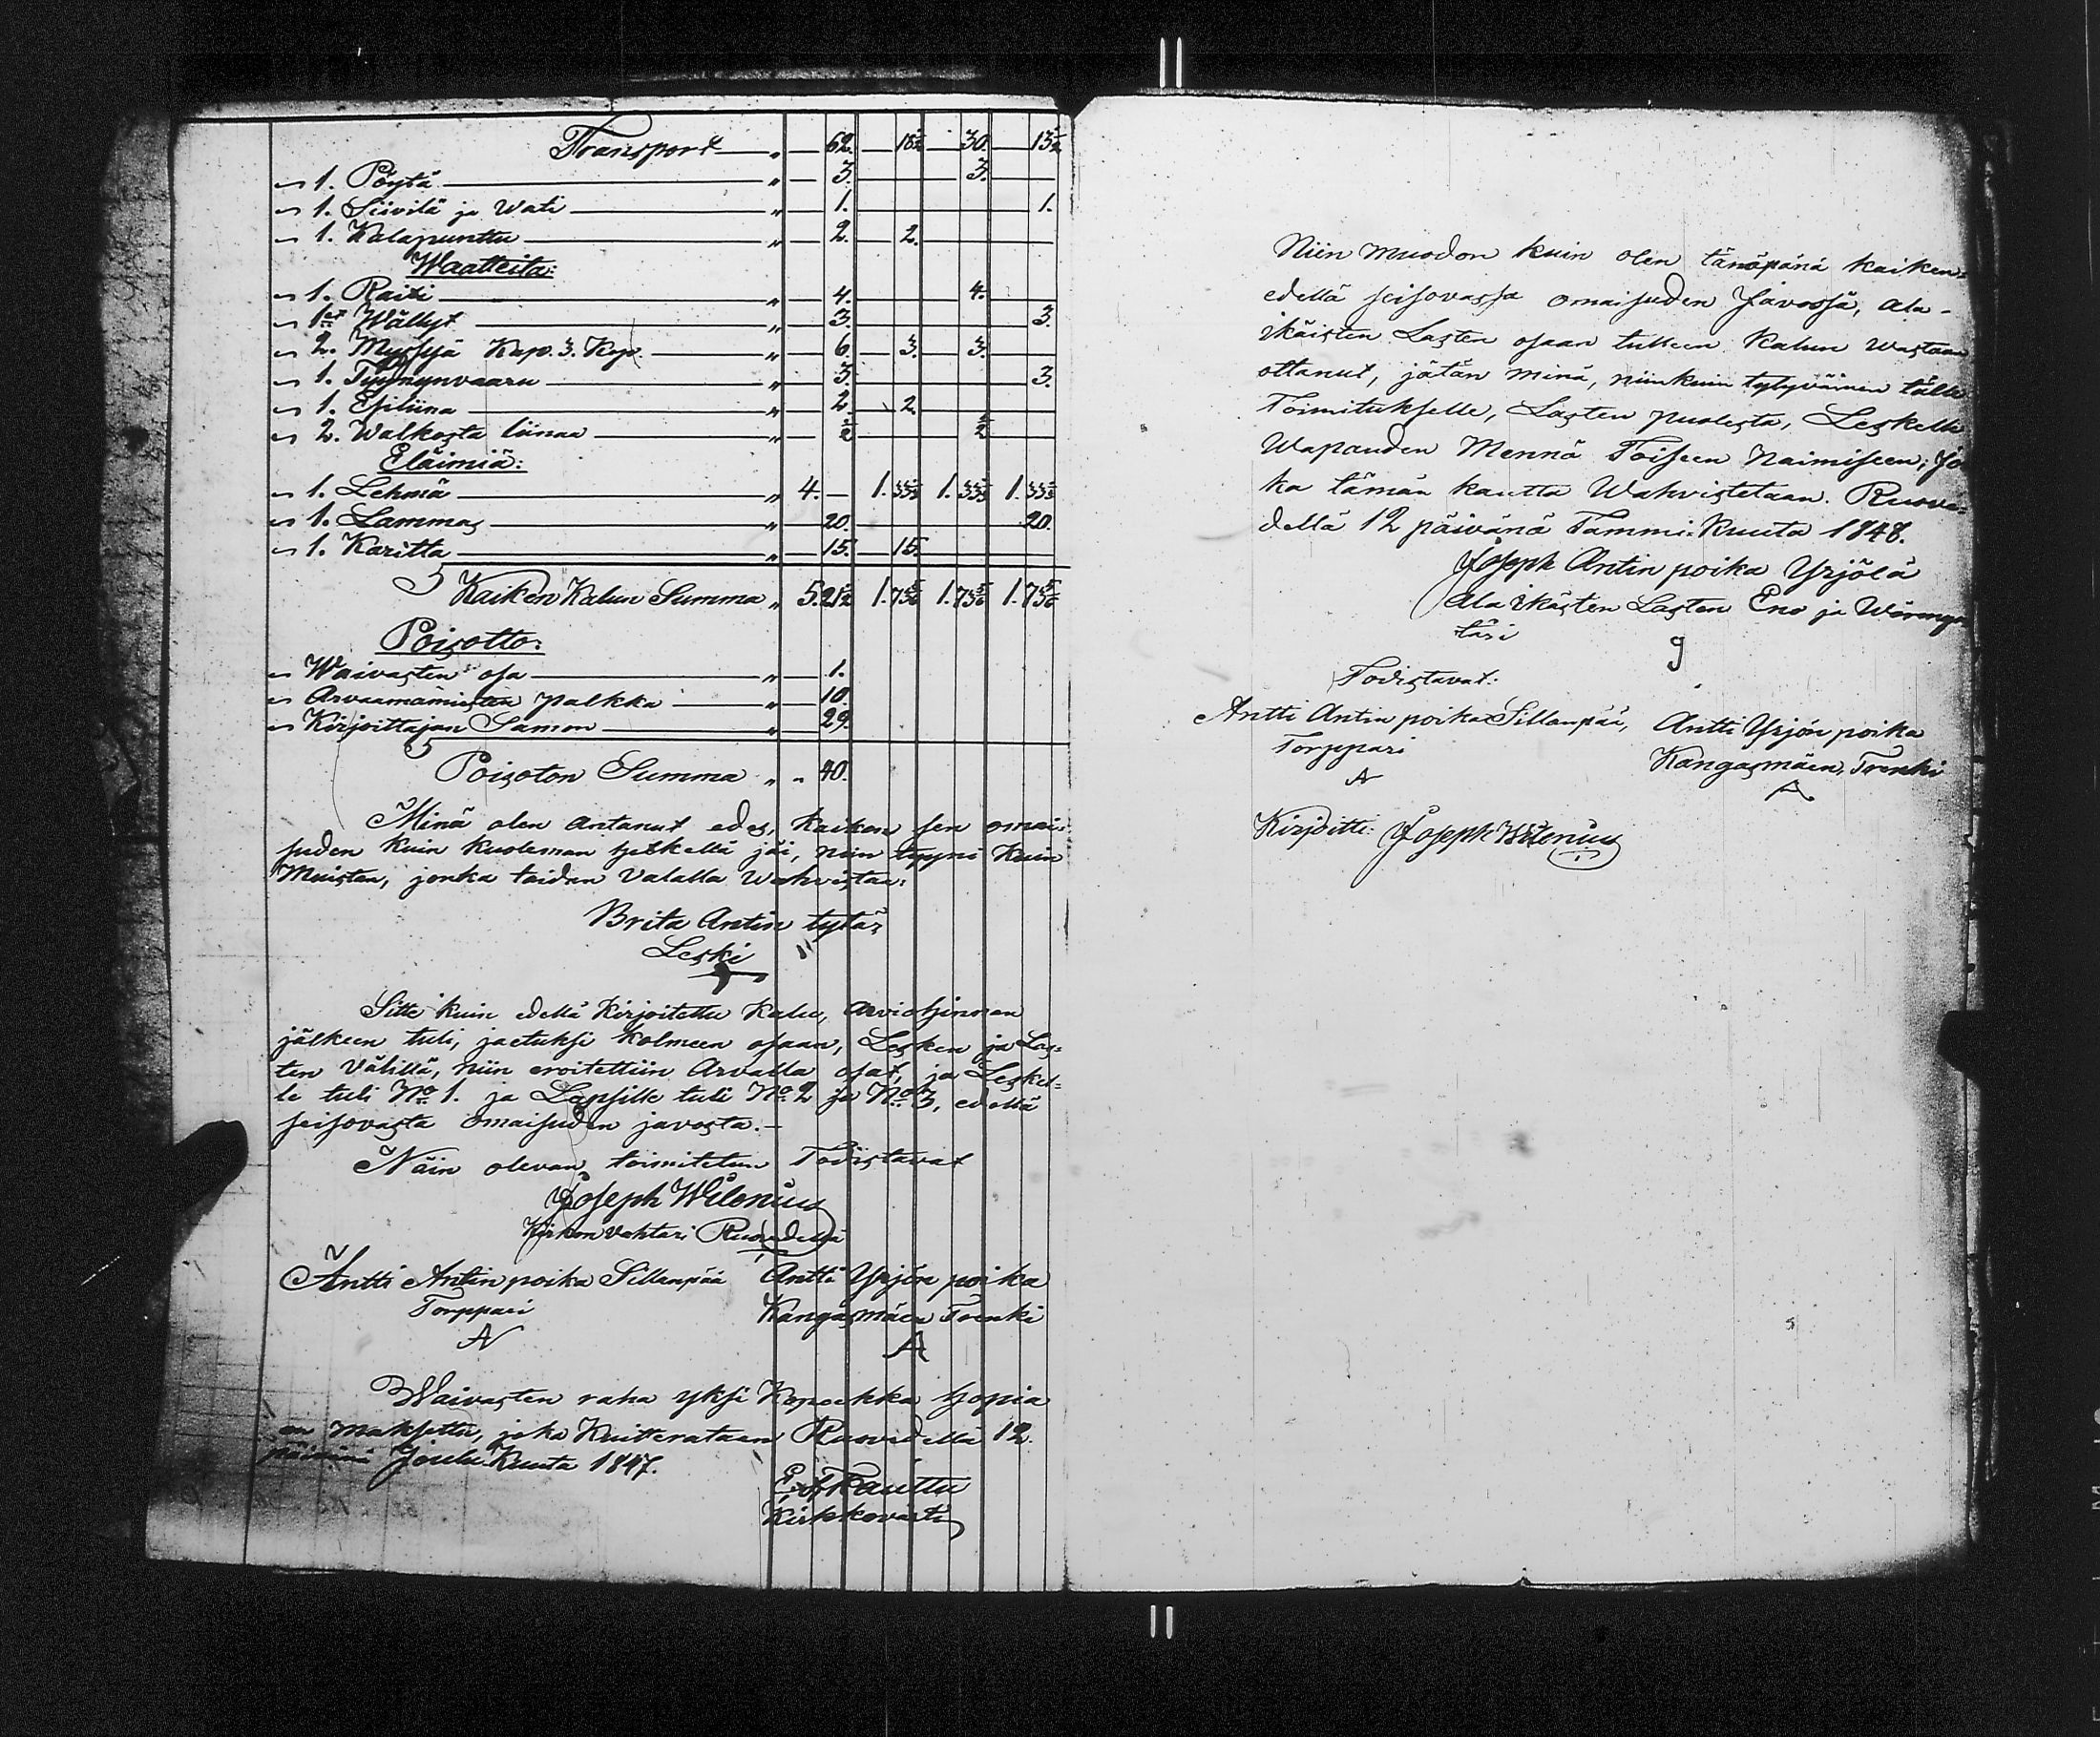 Transport „ — 62. — 18½ — 30. — 13½
„ 1. Pöytä „ — 3. — 3.
„ 1. Siivilä ja Wati „ — 1. — 1.
„ 1. Kalapunttu „ — 2. — 2.
Waatteita:
„ 1. Raiti „ — 4. — 4.
„ 1et Wällyt „ — 3. — 3.
„ 2. Myssyä Kap. 3. Kop. „ — 6. — 3. — 3.
„ 1. Tyynynvaaru „ — 3. — 3.
„ 1. Esiliina „ — 2. — 2.
„ 2. Walkosta liinaa „ — ½ — ½
Eläimiä:
„ 1. Lehmä „ 4. — 1. 33⅓ 1. 33⅓ 1. 33⅓
„ 1. Lammas „ — 20. — 20.
„ 1. Karitta „ — 15. — 15.
Kaiken Kalun Summa „ 5. 21½ 1. 73⅚ 1. 73⅚ 1. 73⅚
Poisotto:
„ Waivasten osa „ — 1.
„ Arvaamamiesten palkka „ — 10.
„ Kirjoittajan Samon „ — 29.
Poisoton Summa „ „ 40.
Minä olen antanut edes, kaiken sen omai-
suden kuin kuoleman hetkellä jäi, niin tyyni kuin
Muistan, jonka taidan Valalla Wahvistaa:
Brita Antin tytär
Leski
Sitte kuin edellä Kirjoitettu Kalu, arviohinnan
jälkeen tuli, jaetuksi kolmeen osaan, Lesken ja Las-
ten Välillä, niin eroitettiin Arvalla osat, ja Leskel-
le tuli No 1. ja Lapsille tuli No 2 ja No 3, edellä
seisovasta omaisuden javosta.—
Näin olevan toimitetun Todistavat
Joseph Wilenius
Kirkon Vahtari Ruovedellä
Antti Antin poika Sillanpää Antti Yrjön poika
Torppari Kangasmäen Trenki
A A
Waivasten raha yksi Kopeekka hopia
on maksettu, joka Kuitterataan Ruovedellä 12.
päivänä Joulu Kuuta 1847.
Kauttu
Kirkkovärti
Niin muodon kuin olen tänäpänä kaiken-
edellä seisovassa omaisuden Javossa, ala-
ikäisten Lasten osaan tulleen Kalun Wastaan
ottanut, jätän minä, niinkuin tytyväinen tälle
Toimitukselle, Lasten puolesta, Leskelle
Wapauden Mennä Toiseen Naimiseen; Jo-
ka tämän kautta Wahvistetaan. Ruove-
dellä 12 päivänä Tammi: Kuuta 1848.
Joseph Antin poika Yrjölä
Ala ikästen Lasten Eno ja Wörmyn-
täri
g
Todistavat:
Antti Antin poika Sillanpää, Antti Yrjön poika
Torppari Kangasmäen Trenki
A A
Kirjoitti: Joseph Wilenius